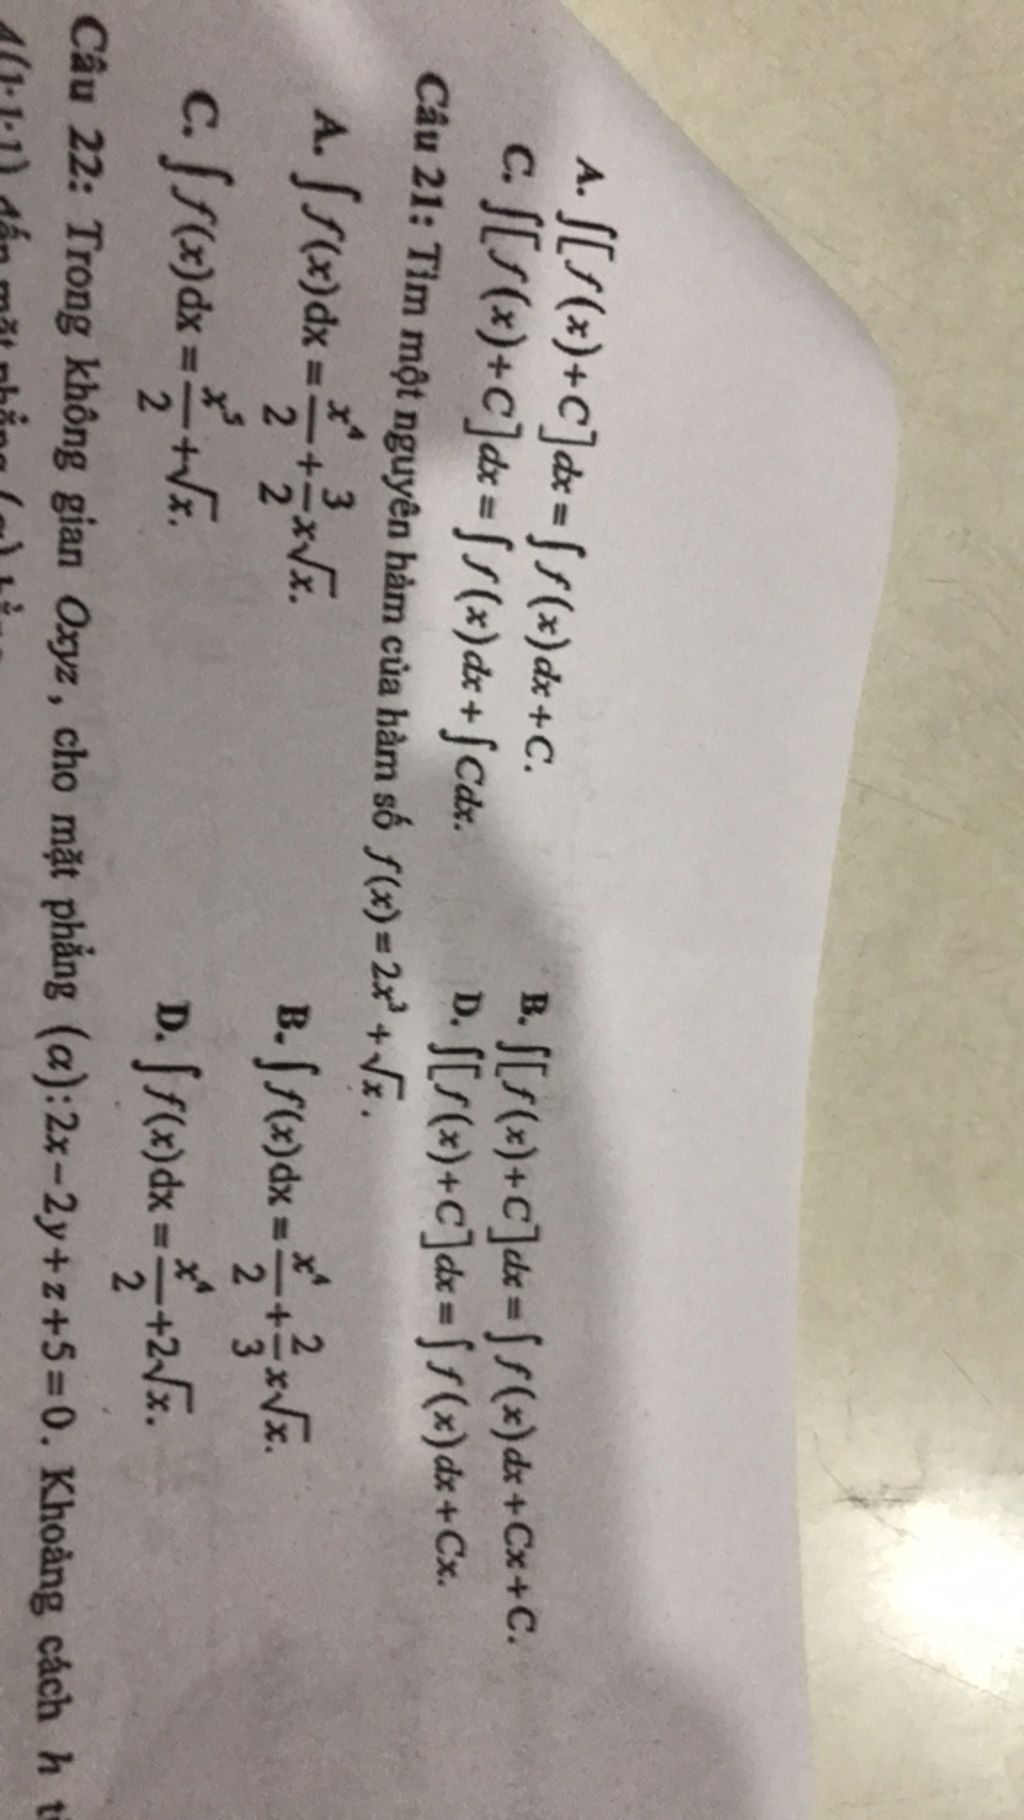 A. ∫[f(x)+C]dx = ∫f(x)dx+C. B. ∫[f(x)+C]dx = ∫f(x)dx+Cx+C.
C. ∫[f(x)+C]dx = ∫f(x)dx+∫Cdx. D. ∫[f(x)+C]dx = ∫f(x)dx+Cx.
Câu 21: Tìm một nguyên hàm của hàm số f(x)=2x³+√x.
A. ∫f(x)dx = x⁴/2 + 3/2 x√x. B. ∫f(x)dx = x⁴/2 + 2/3 x√x.
C. ∫f(x)dx = x⁵/2 + √x. D. ∫f(x)dx = x⁴/2 + 2√x.
Câu 22: Trong không gian Oxyz, cho mặt phẳng (α): 2x−2y+z+5=0. Khoảng cách h
A(1;1;1) đến mặt phẳng (α)